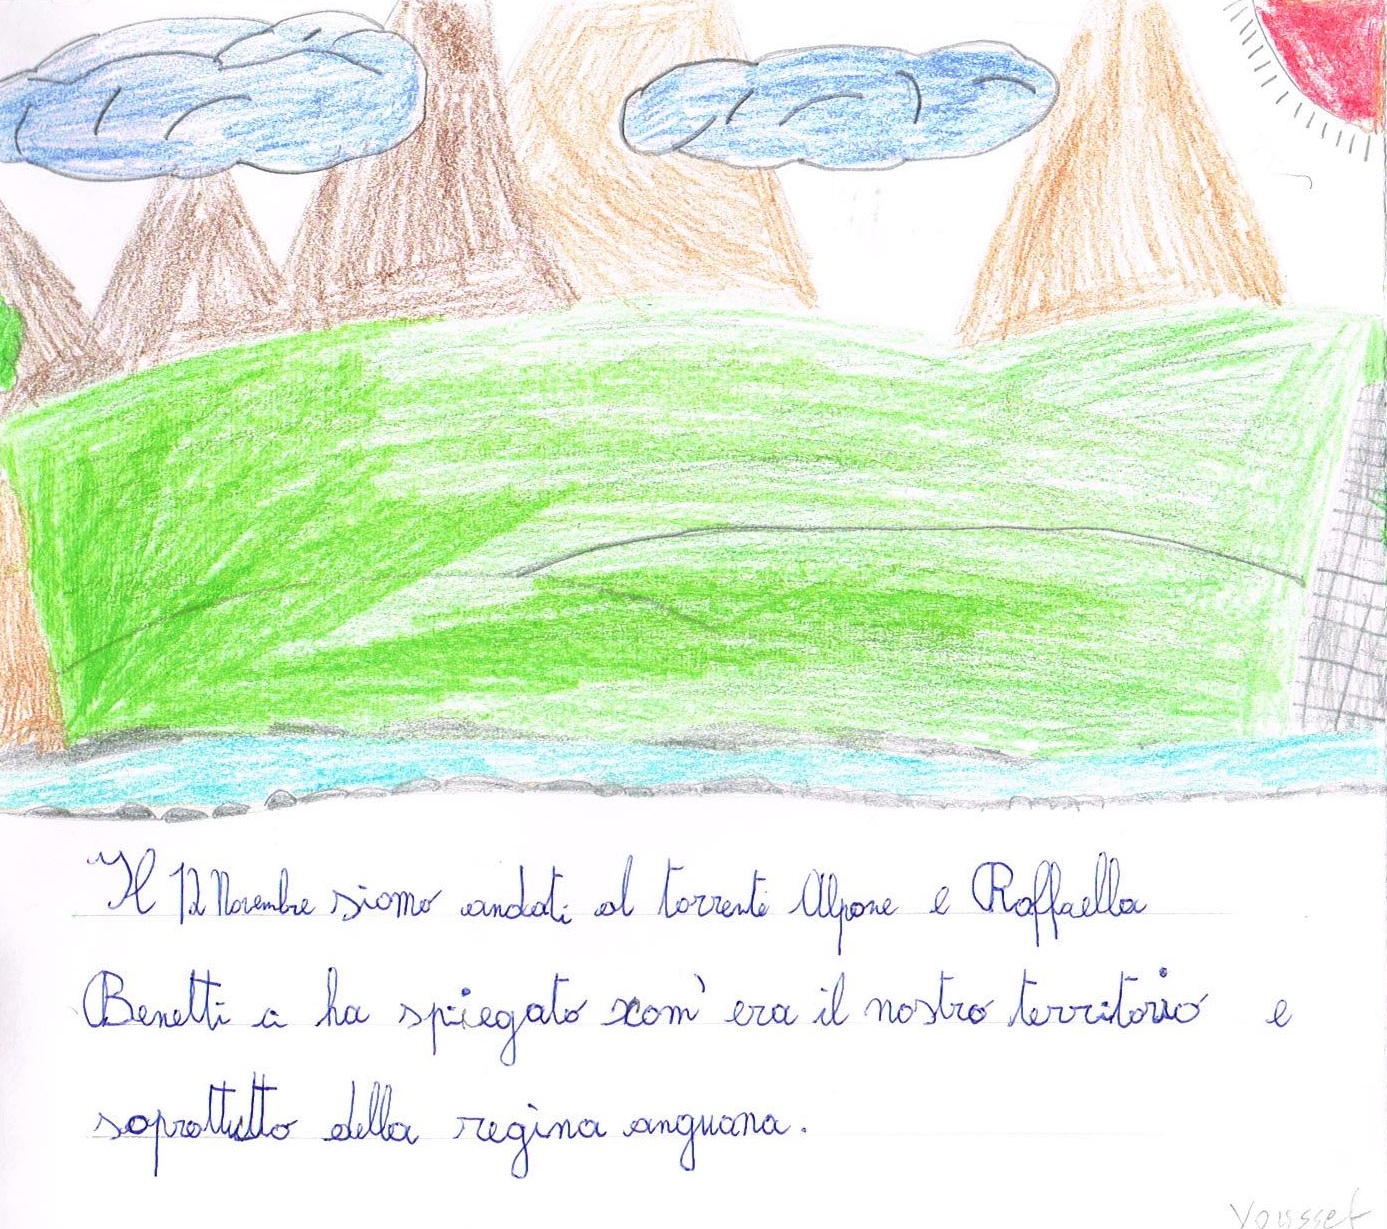 Il 12 Novembre siamo andati al torrente Alpone e Raffaella
Benetti ci ha spiegato com' era il nostro territorio e
soprattutto della regina anguana.
Youssef